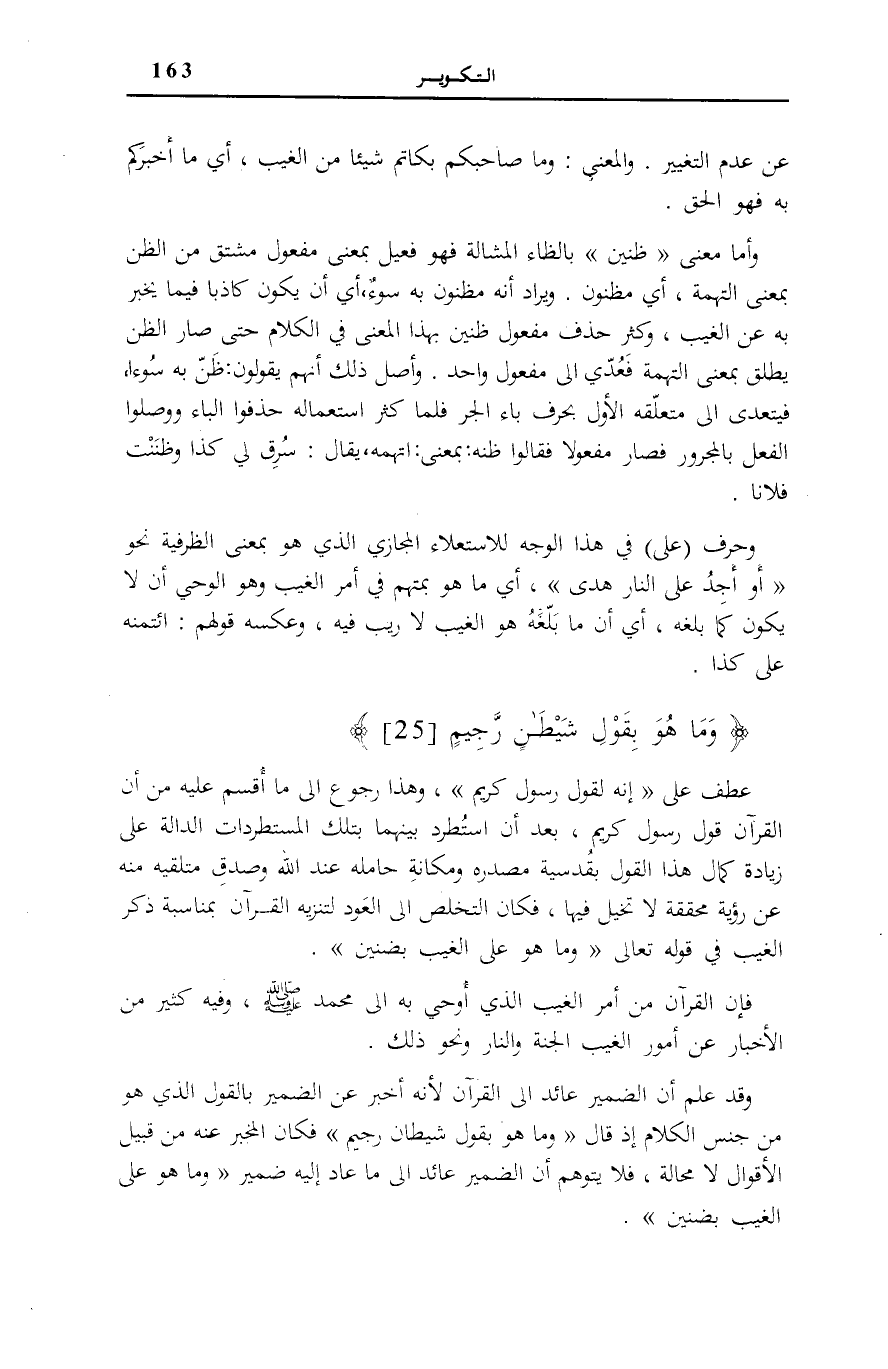 التـكـويـر 163
عن عدم التغيير . والمعنى : وما صاحبكم بكاتم شيئا من الغيب ، أي ما أخبَركم
به فهو الحق .
وأما معنى « ظنين » بالظاء المشالة فهو فعيل بمعنى مفعول مشتق من الظن
بمعنى التهمة ، أي مظنون . ويراد أنه مظنون به سوءٌ،أي أن يكون كاذبا فيما يخبر
به عن الغيب ، وكثر حذف مفعول ظنين بهذا المعنى في الكلام حتى صار الظن
يطلق بمعنى التهمة فَعُدّي الى مفعول واحد . وأصل ذلك أنهم يقولون:ظَنّ به سُوءا،
فيتعدى الى متعلّقه الأول بحرف باء الجر فلما كثر استعماله حذفوا الباء ووصلوا
الفعل بالمجرور فصار مفعولا فقالوا ظنه:بمعنى:اتهمه،يقال : سُرِق لي كذا وظنَنْت
فلانا .
وحرف (على) في هذا الوجه للاستعلاء المجازي الذي هو بمعنى الظرفية نحو
« أو أَجِدُ على النار هدى » ، أي ما هو بمتهم في أمر الغيب وهو الوحي أن لا
يكون كما بلغه ، أي أن ما بَلّغَهُ هو الغيب لا ريب فيه ، وعكسه قولهم : ائتمنه
على كذا .
﴿ وَمَا هُوَ بِقَوْلِ شَيْطَـٰنٍ رَّجِيمٍ [25] ﴾
عطف على « إنه لقول رسول كريم » ، وهذا رجوع الى ما أُقسم عليه من أن
القرآن قول رسول كريم ، بعد أن استُطرد بينهما بتلك المستطردات الدالة على
زيادة كمال هذا القول بقُدسية مصدره ومكانةِ حامله عند الله وصدقِ متلقيه منه
عن رؤية محققة لا تخيل فيها ، فكان التخلص الى العَود لتنزيه القـرآن بمناسبة ذكر
الغيب في قوله تعالى « وما هو على الغيب بضنين » .
فإن القرآن من أمر الغيب الذي أُوحي به الى محمد ﷺ ، وفيه كثير من
الأخبار عن أمور الغيب الجنة والنار ونحو ذلك .
وقد علم أن الضمير عائد الى القرآن لأنه أخبر عن الضمير بالقول الذي هو
من جنس الكلام إذ قال « وما هو بقول شيطان رجيم » فكان المخبر عنه من قبيل
الأقوال لا محالة ، فلا يتوهم أن الضمير عائد الى ما عاد إليه ضمير « وما هو على
الغيب بضنين » .